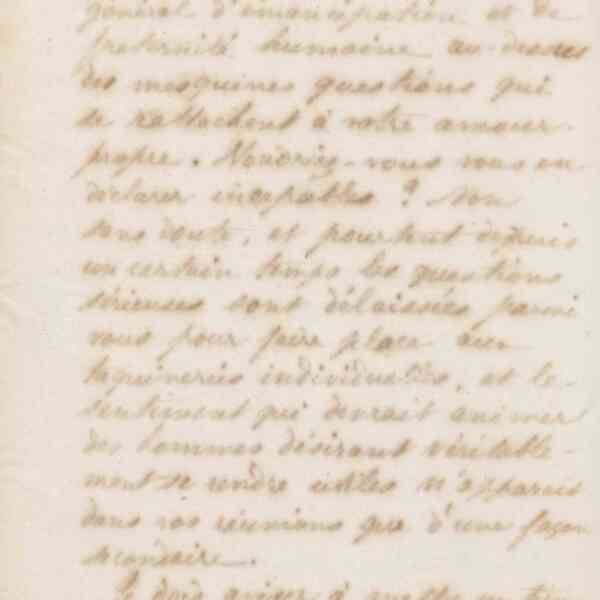 général d'émancipation et de
fraternité humaine au-dessus
des mesquines questions qui
se rattachent à votre amour-
propre. Voudriez-vous vous en
déclarer incapables ? Non
sans doute, et pourtant depuis
un certain temps les questions
sérieuses sont délaissées parmi
vous pour faire place aux
taquineries individuelles, et le
sentiment qui devrait animer
des hommes désirant véritable-
ment se rendre utiles n'apparait
dans vos réunions que d'une façon
secondaire.
Je dois à